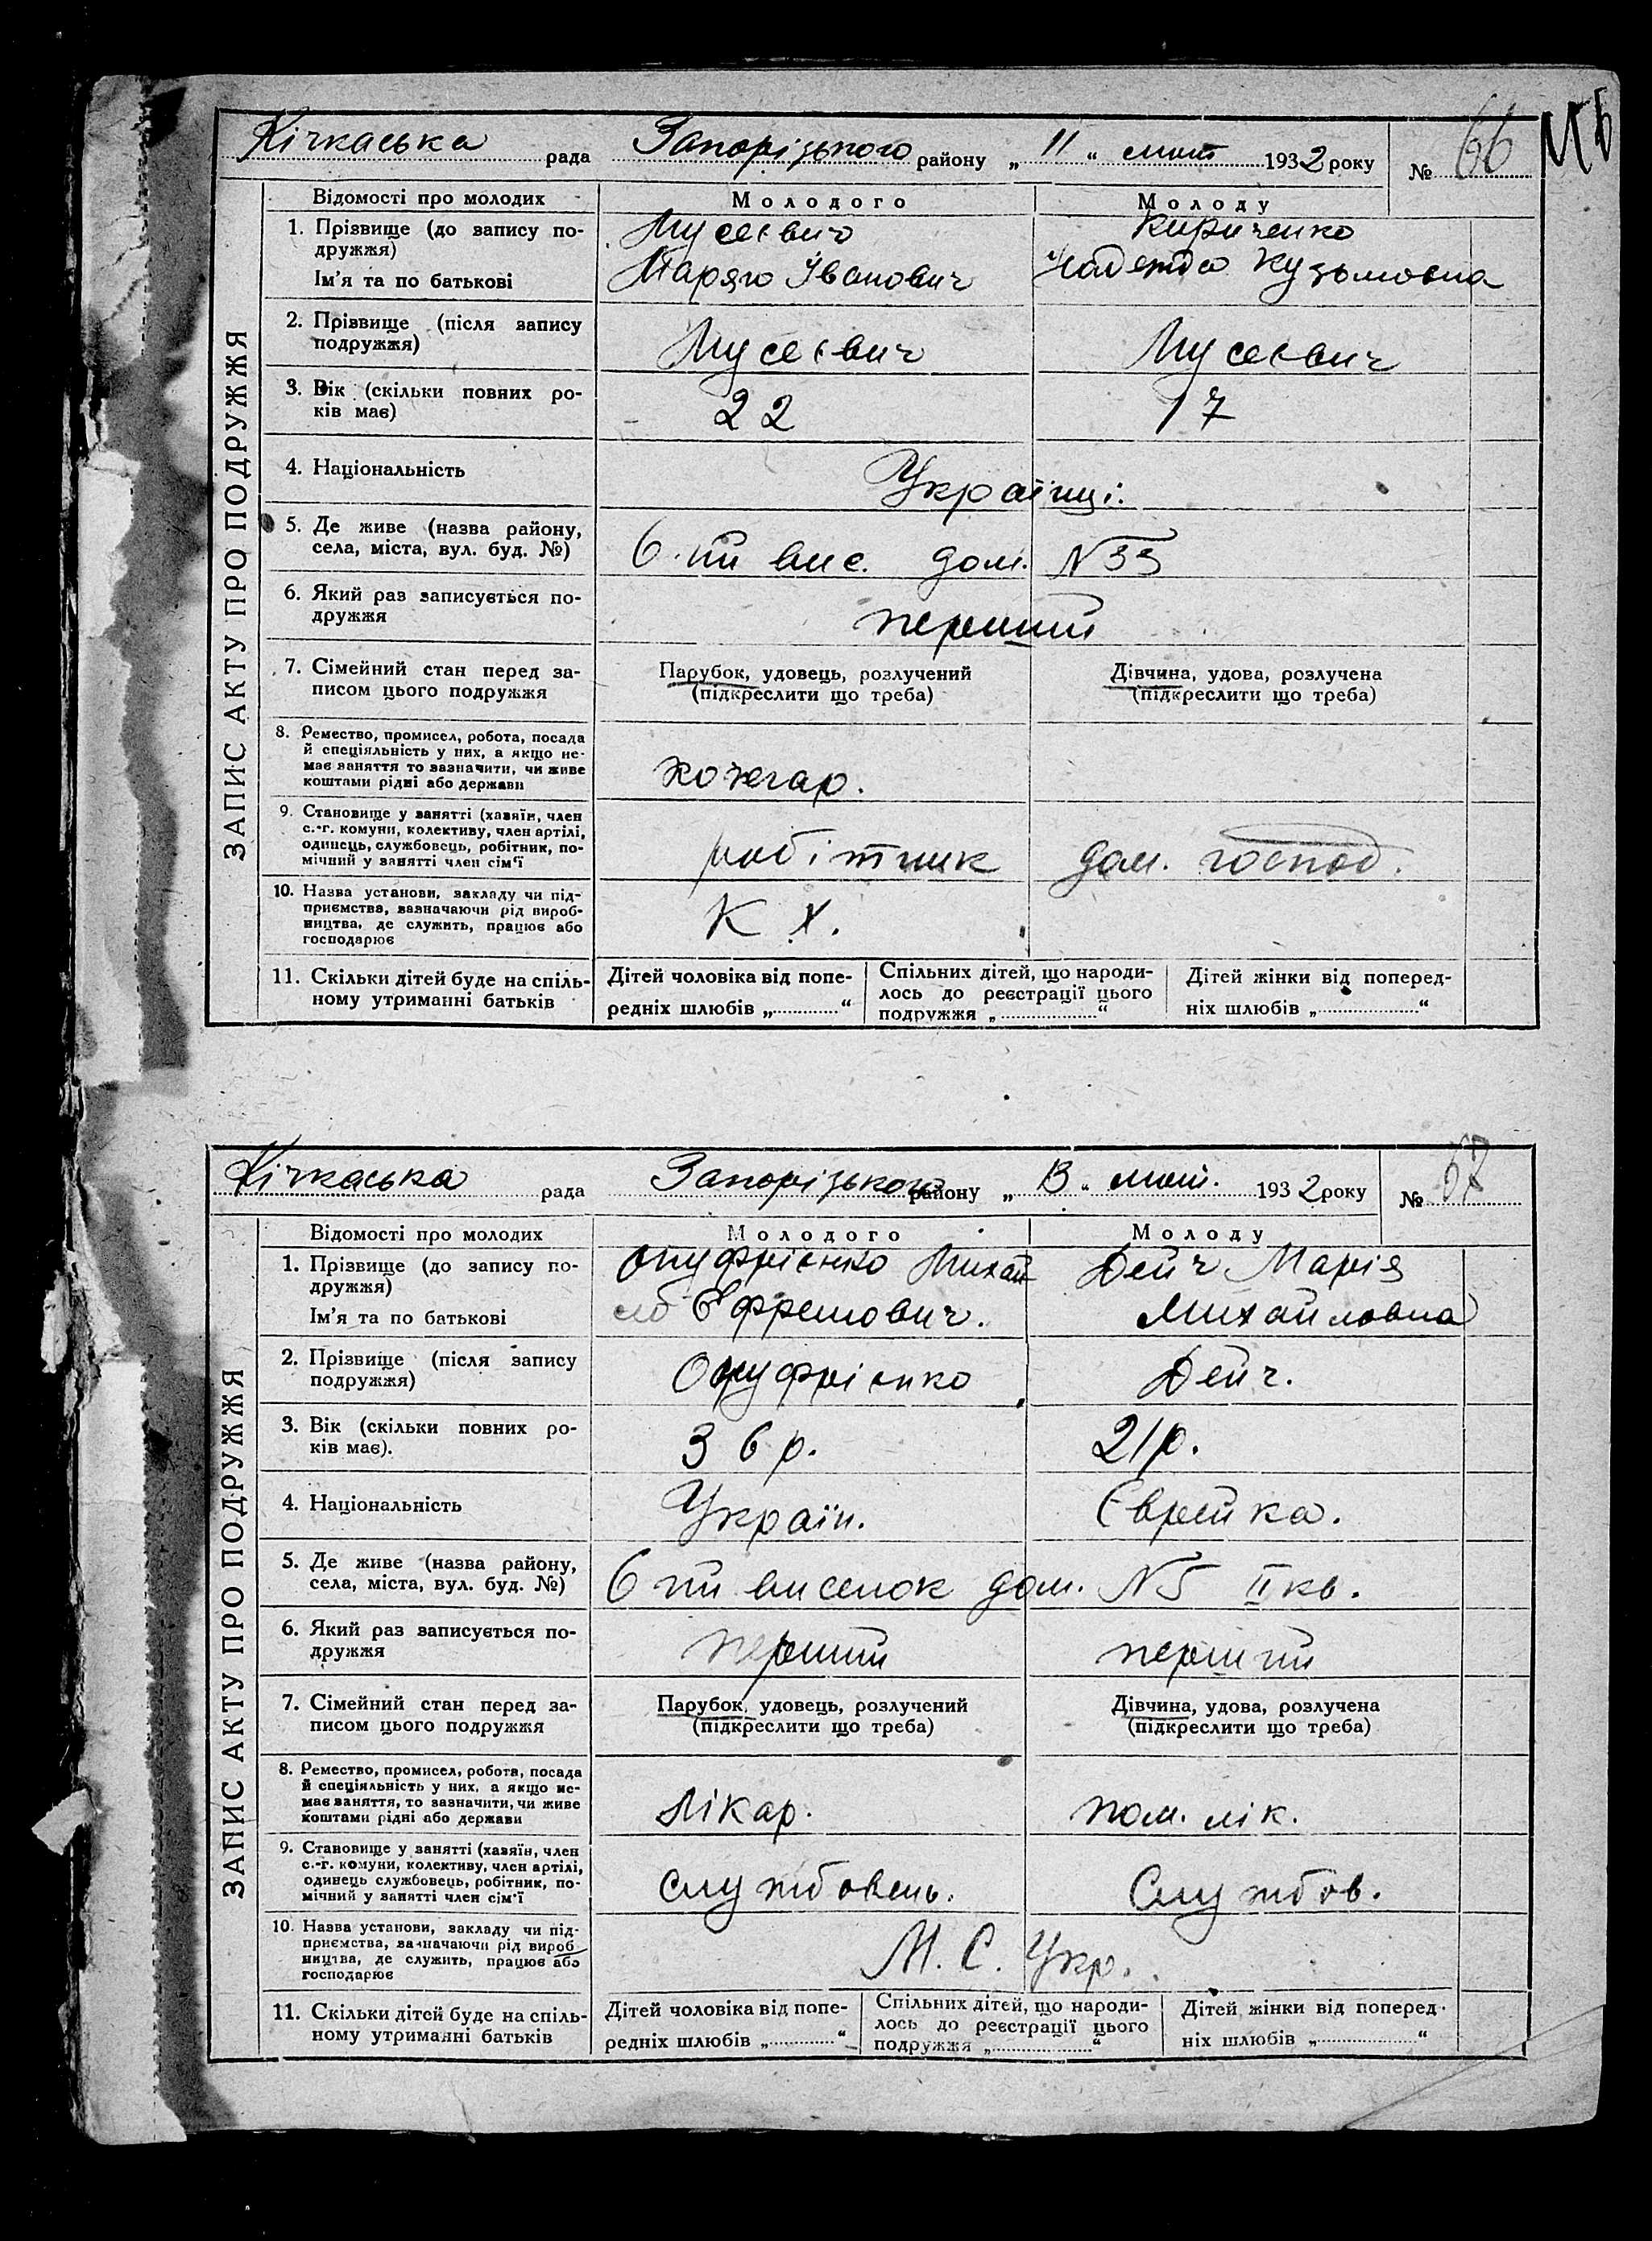 Кічкаська рада Запорізького району „ 11 “ лют 1932 року № 66
Відомості про молодих Молодого Молоду
ЗАПИС АКТУ ПРО ПОДРУЖЖЯ
1. Прізвище (до запису по-
дружжя)
Мусеєвич Кириченко
Ім'я та по батькові
Іванович Надежда Кузьмовна
2. Пріввище (після запису
подружжя)
Мусеєвич Мусеєвич
3. Вік (скільки повних ро-
ків має)
22 17
4. Національність
Українці.
5. Де живе (назва району,
села, міста, вул. буд. №)
6.ий вис. дом. N 33
6. Який раз записується по-
дружжя
перший
7. Сімейний стан перед за-
писом цього подружжя
Парубок, удовець, розлучений
(підкреслити що треба)
Дівчина, удова, розлучена
(підкреслити що треба)
8. Ремество, промисел, робота, посада
й спеціяльність у них, а якщо не-
має заняття то зазначити, чи живе
коштами рідні або держави
кочегар.
9. Становище у занятті (хазяїн, член
с.-г. комуни, колективу, член артілі,
одинець, службовець, робітник, по-
мічний у занятті член сім'ї
робітник дом. господ.
10. Назва установи, закладу чи під-
приємства, зазначаючи рід вироб-
ництва, де служить, працює або
господарює
К Х.
11. Скільки дітей буде на спіль-
ному утриманні батьків
Дітей чоловіка від попе-
редніх шлюбів „ “
Спільних дітей, що народи-
лось до реєстрації цього
подружжя „ “
Дітей жінки від поперед-
ніх шлюбів „ “
Кічкаська рада Запорізького району „ 13 “ лют. 1932 року № 67
Відомості про молодих Молодого Молоду
ЗАПИС АКТУ ПРО ПОДРУЖЖЯ
1. Прізвище (до запису по-
дружжя)
Онуфрієнко Михай Дейч Марія
Ім'я та по батькові
ло Ефремович. Михайловна
2. Прізвище (після запису
подружжя)
Онуфрієнко Дейч.
3. Вік (скільки повних ро-
ків має).
36 р. 21 р.
4. Національність
Україн. Єврейка.
5. Де живе (назва району,
села, міста, вул. буд. №)
6 ий виселок дом. N 5 II кв.
6. Який раз записується по-
дружжя
перший перший
7. Сімейний стан перед за-
писом цього подружжя
Парубок, удовець, розлучений
(підкреслити що треба)
Дівчина, удова, розлучена
(підкреслити що треба)
8. Ремество, промисел, робота, посада
й спеціяльність у них, а якщо не-
має заняття, то зазначити, чи живе
коштами рідні або держави
Лікар. пом. лік.
9. Становище у занятті (хазяїн, член
с.-г. комуни, колективу, член артілі,
одинець службовець, робітник, по-
мічний у занятті член сім'ї
службовець. Службов.
10. Назва установи, закладу чи під-
приємства, зазначаючи рід вироб
ництва, де служить, працює або
господарює
М. С. Укр.
11. Скільки дітей буде на спіль-
ному утриманні батьків
Дітей чоловіка від попе-
редніх шлюбів „ “
Спільних дітей, що народи-
лось до реєстрації цього
подружжя „ “
Дітей жінки від поперед-
ніх шлюбів „ “